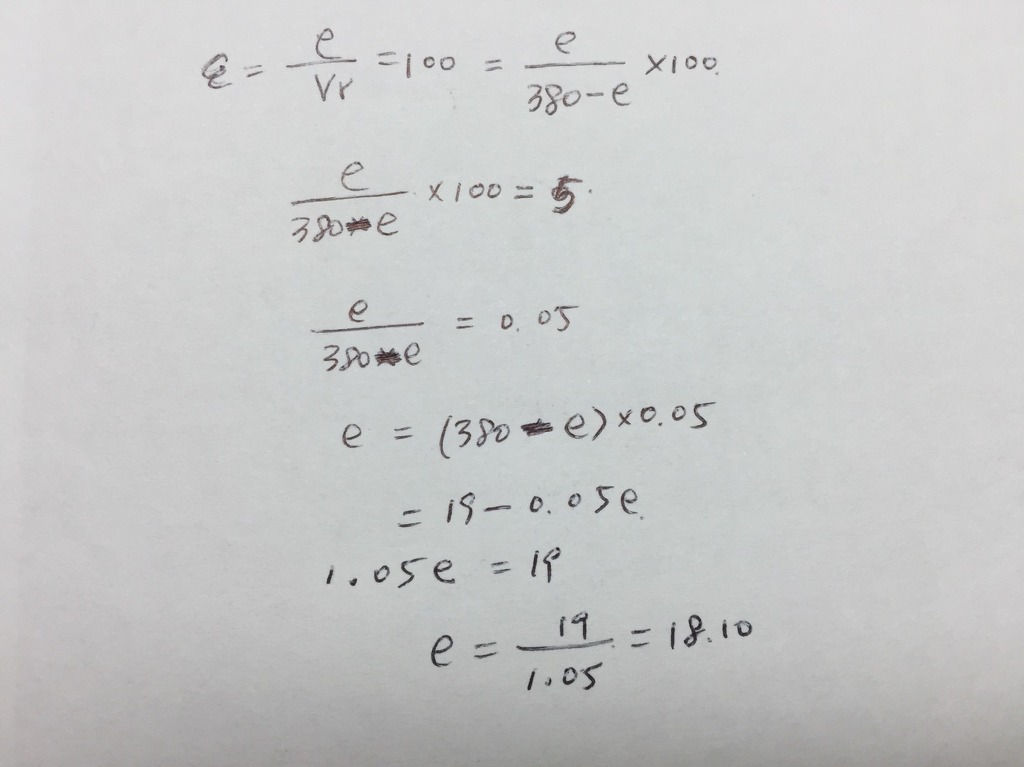 ε = e/Vr = 100 = e/(380-e) ×100.
e/(380-e) ×100 = 5.
e/(380-e) = 0.05
e = (380-e)×0.05
= 19-0.05e.
1.05e = 19
e = 19/1.05 = 18.10